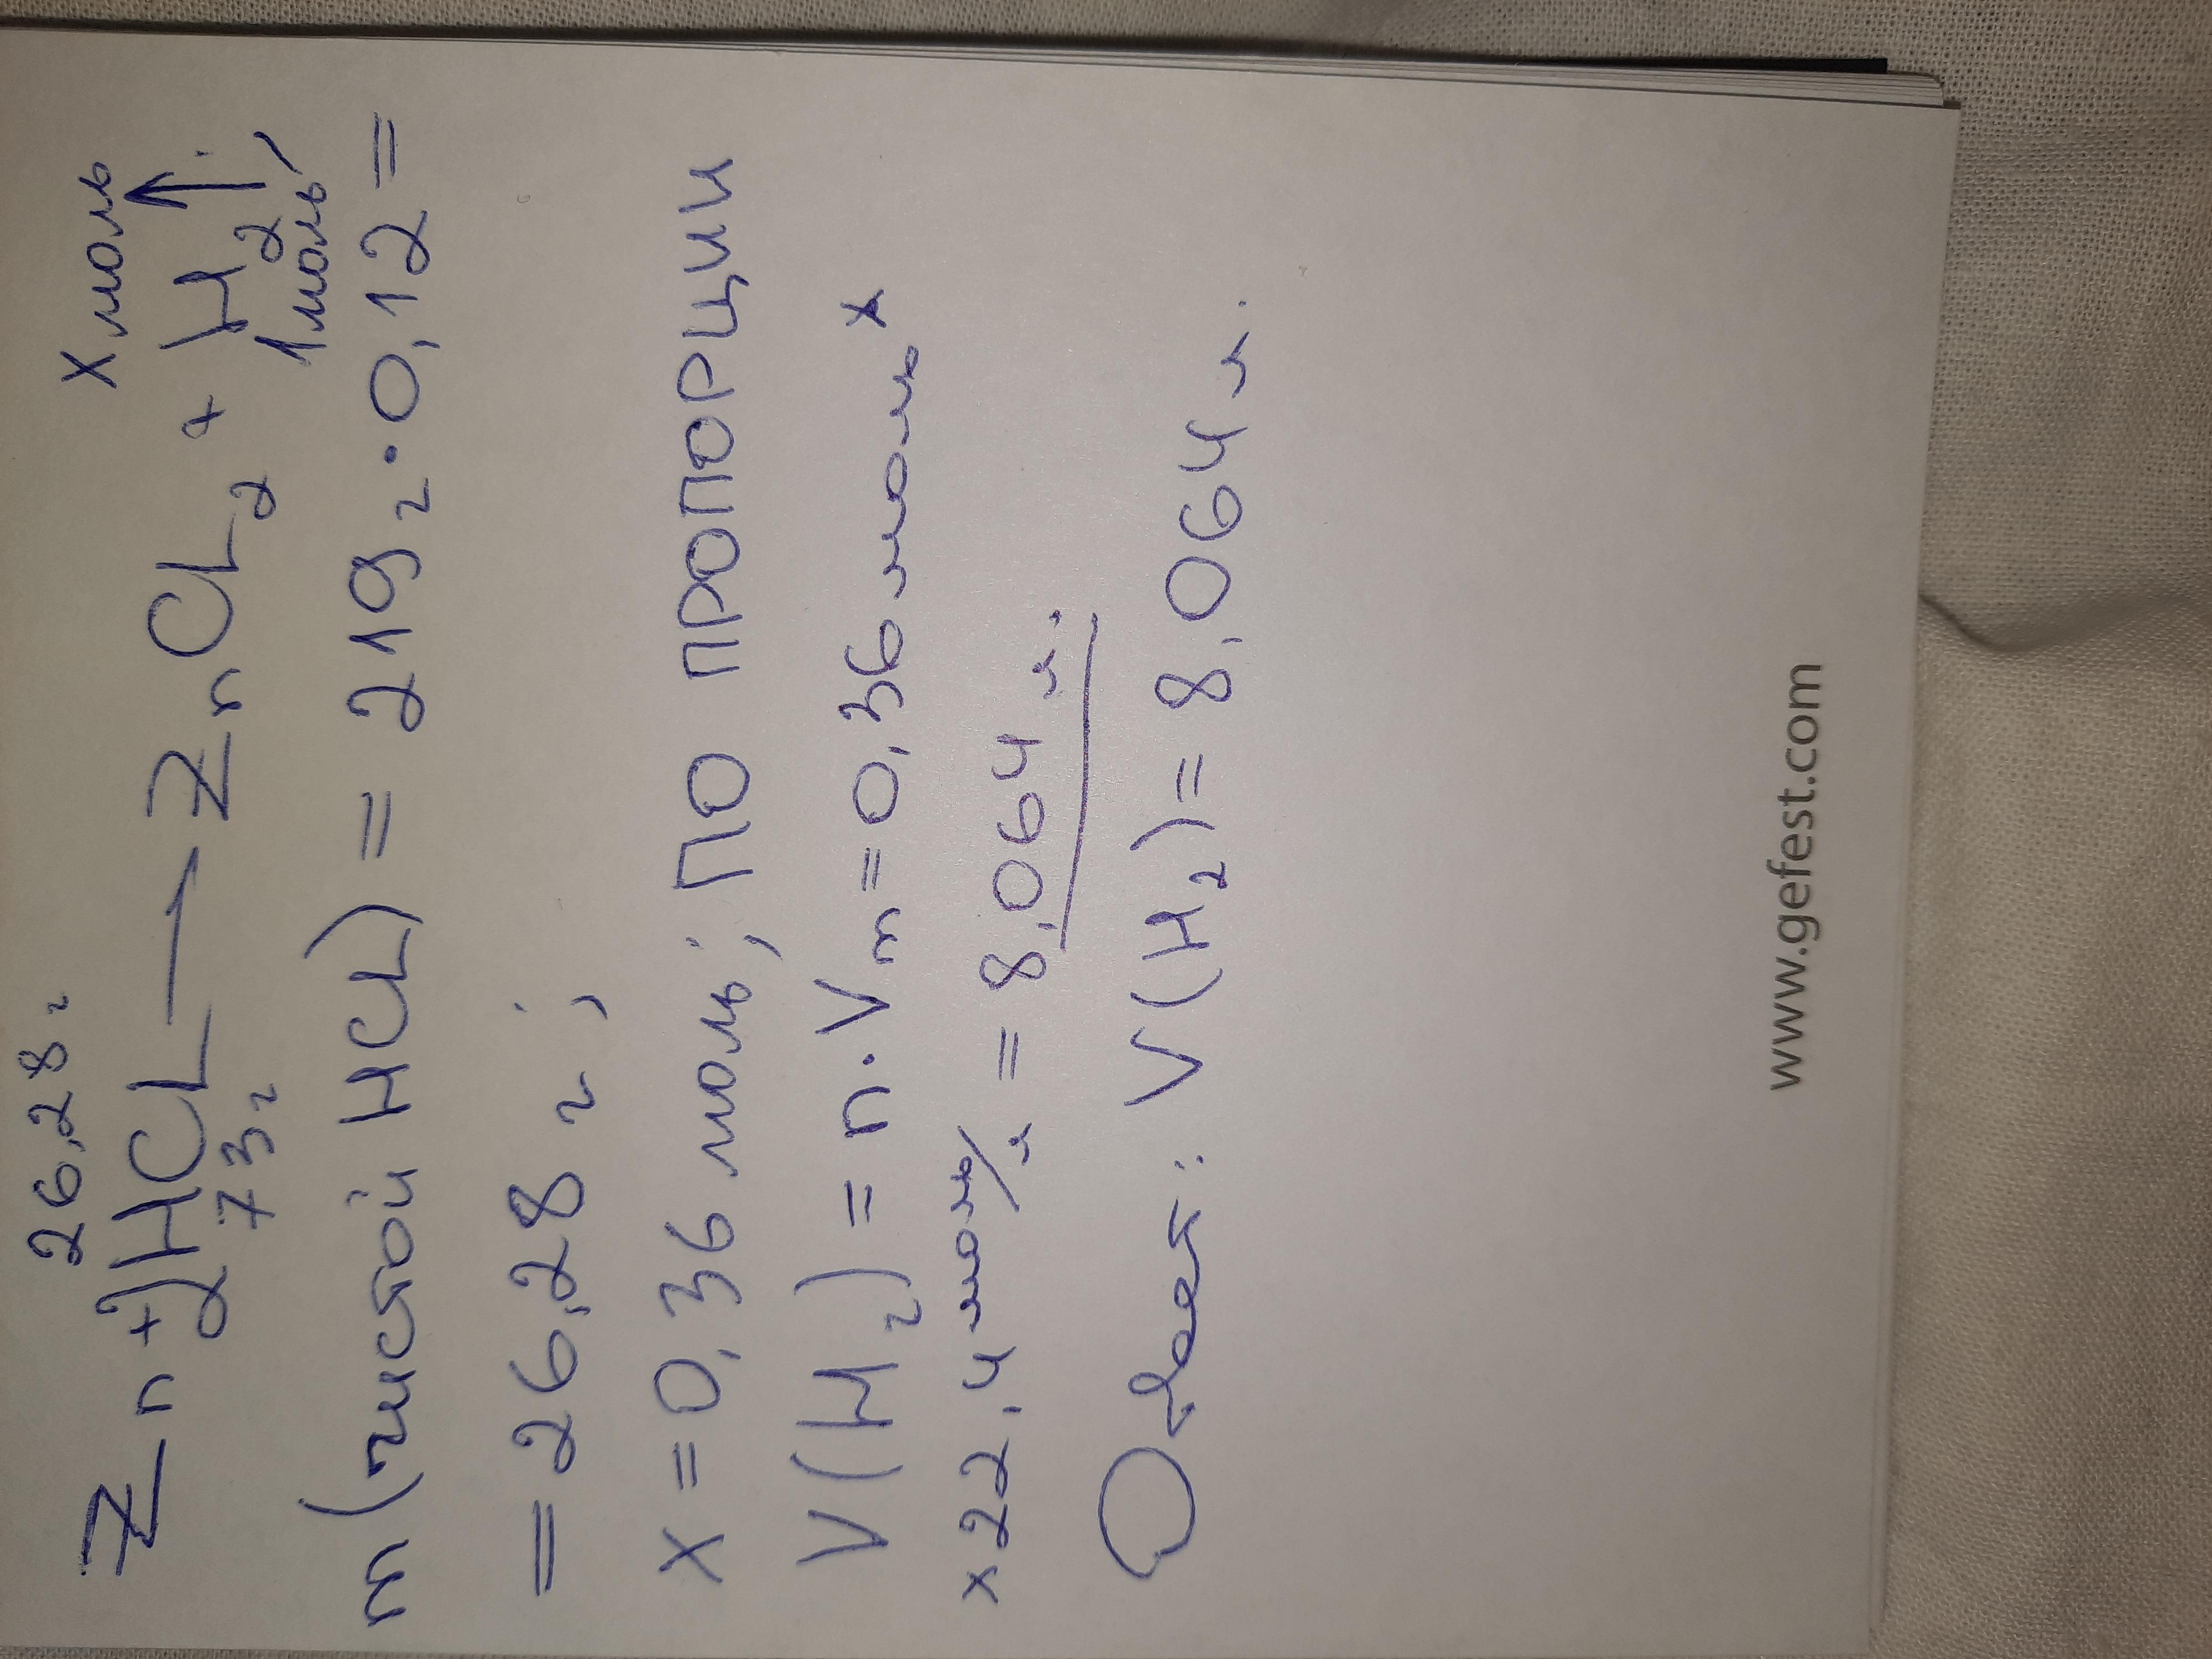 26,28г x моль
Zn + 2HCl — ZnCl₂ + H₂↑.
73г 1 моль,
m(чистой HCl) = 219г · 0,12 =
= 26,28 г ;
x = 0,36 моль ; ПО ПРОПОРЦИИ
V(H₂) = n · Vm = 0,36 моль ×
× 22,4 моль/л = 8,064 л.
Ответ: V(H₂) = 8,064 л.
www.gefest.com